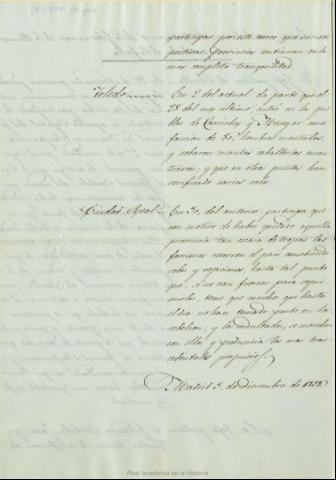 participan por este correo que sus res-
pectivas provincias continuan en la
mas completa tranquilidad.
Toledo En 2 del actual da parte que el
28 del mes ultimo, entró en los pue
blos de Carriches y Mesegar una
faccion de 80 hombres montados
y robaron cuantas caballerias encon
traron; y que en otros puntos han
verificado varios robos.
Ciudad Real En 30 del anterior participa que
con motivo de haber quedado aquella
provincia tan escasa de tropas las
facciones recorren el pais cometiendo
robos y vejaciones, hasta tal punto
que, si no van fuerzas para repri
mirlos, teme que muchos que hasta
el dia no han tomado parte en la
rebelion, y los indultados, se marchen
con ellos y produciria los mas tras
cendentales perjuicios.
Madrid 3 de Diciembre de 1838
Real Academia de la Historia